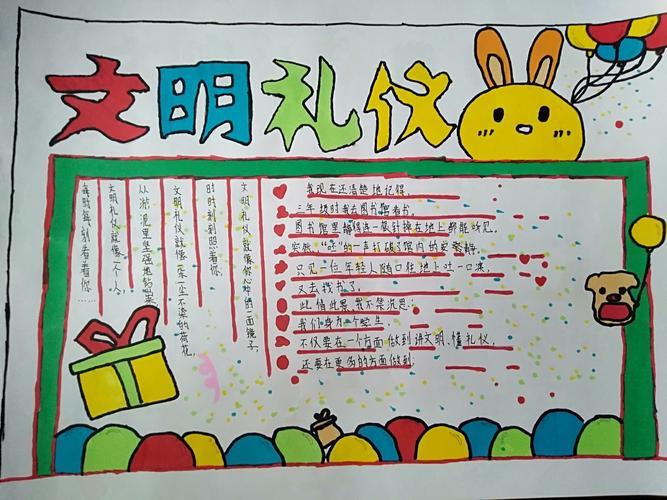 文明礼仪
文明礼仪就像你心中的一面镜子,
时时刻刻照着你,
文明礼仪就像一朵一尘不染的荷花,
从淤泥里坚强地钻出来
文明礼仪就像一个人,
每时每刻看着你……
我现在还清楚地记得,
三年级时我去图书馆看书。
图书馆里静得连一根针掉在地上都能听见。
突然,"呸"的一声打破了馆内的安静。
只见一位年轻人随口往地上吐一口痰,
又去找书了。
此情此景,我不禁沉思:
我们身为一个学生,
不仅要在一个方面做到讲文明、懂礼仪,
还要在更多的方面做到。